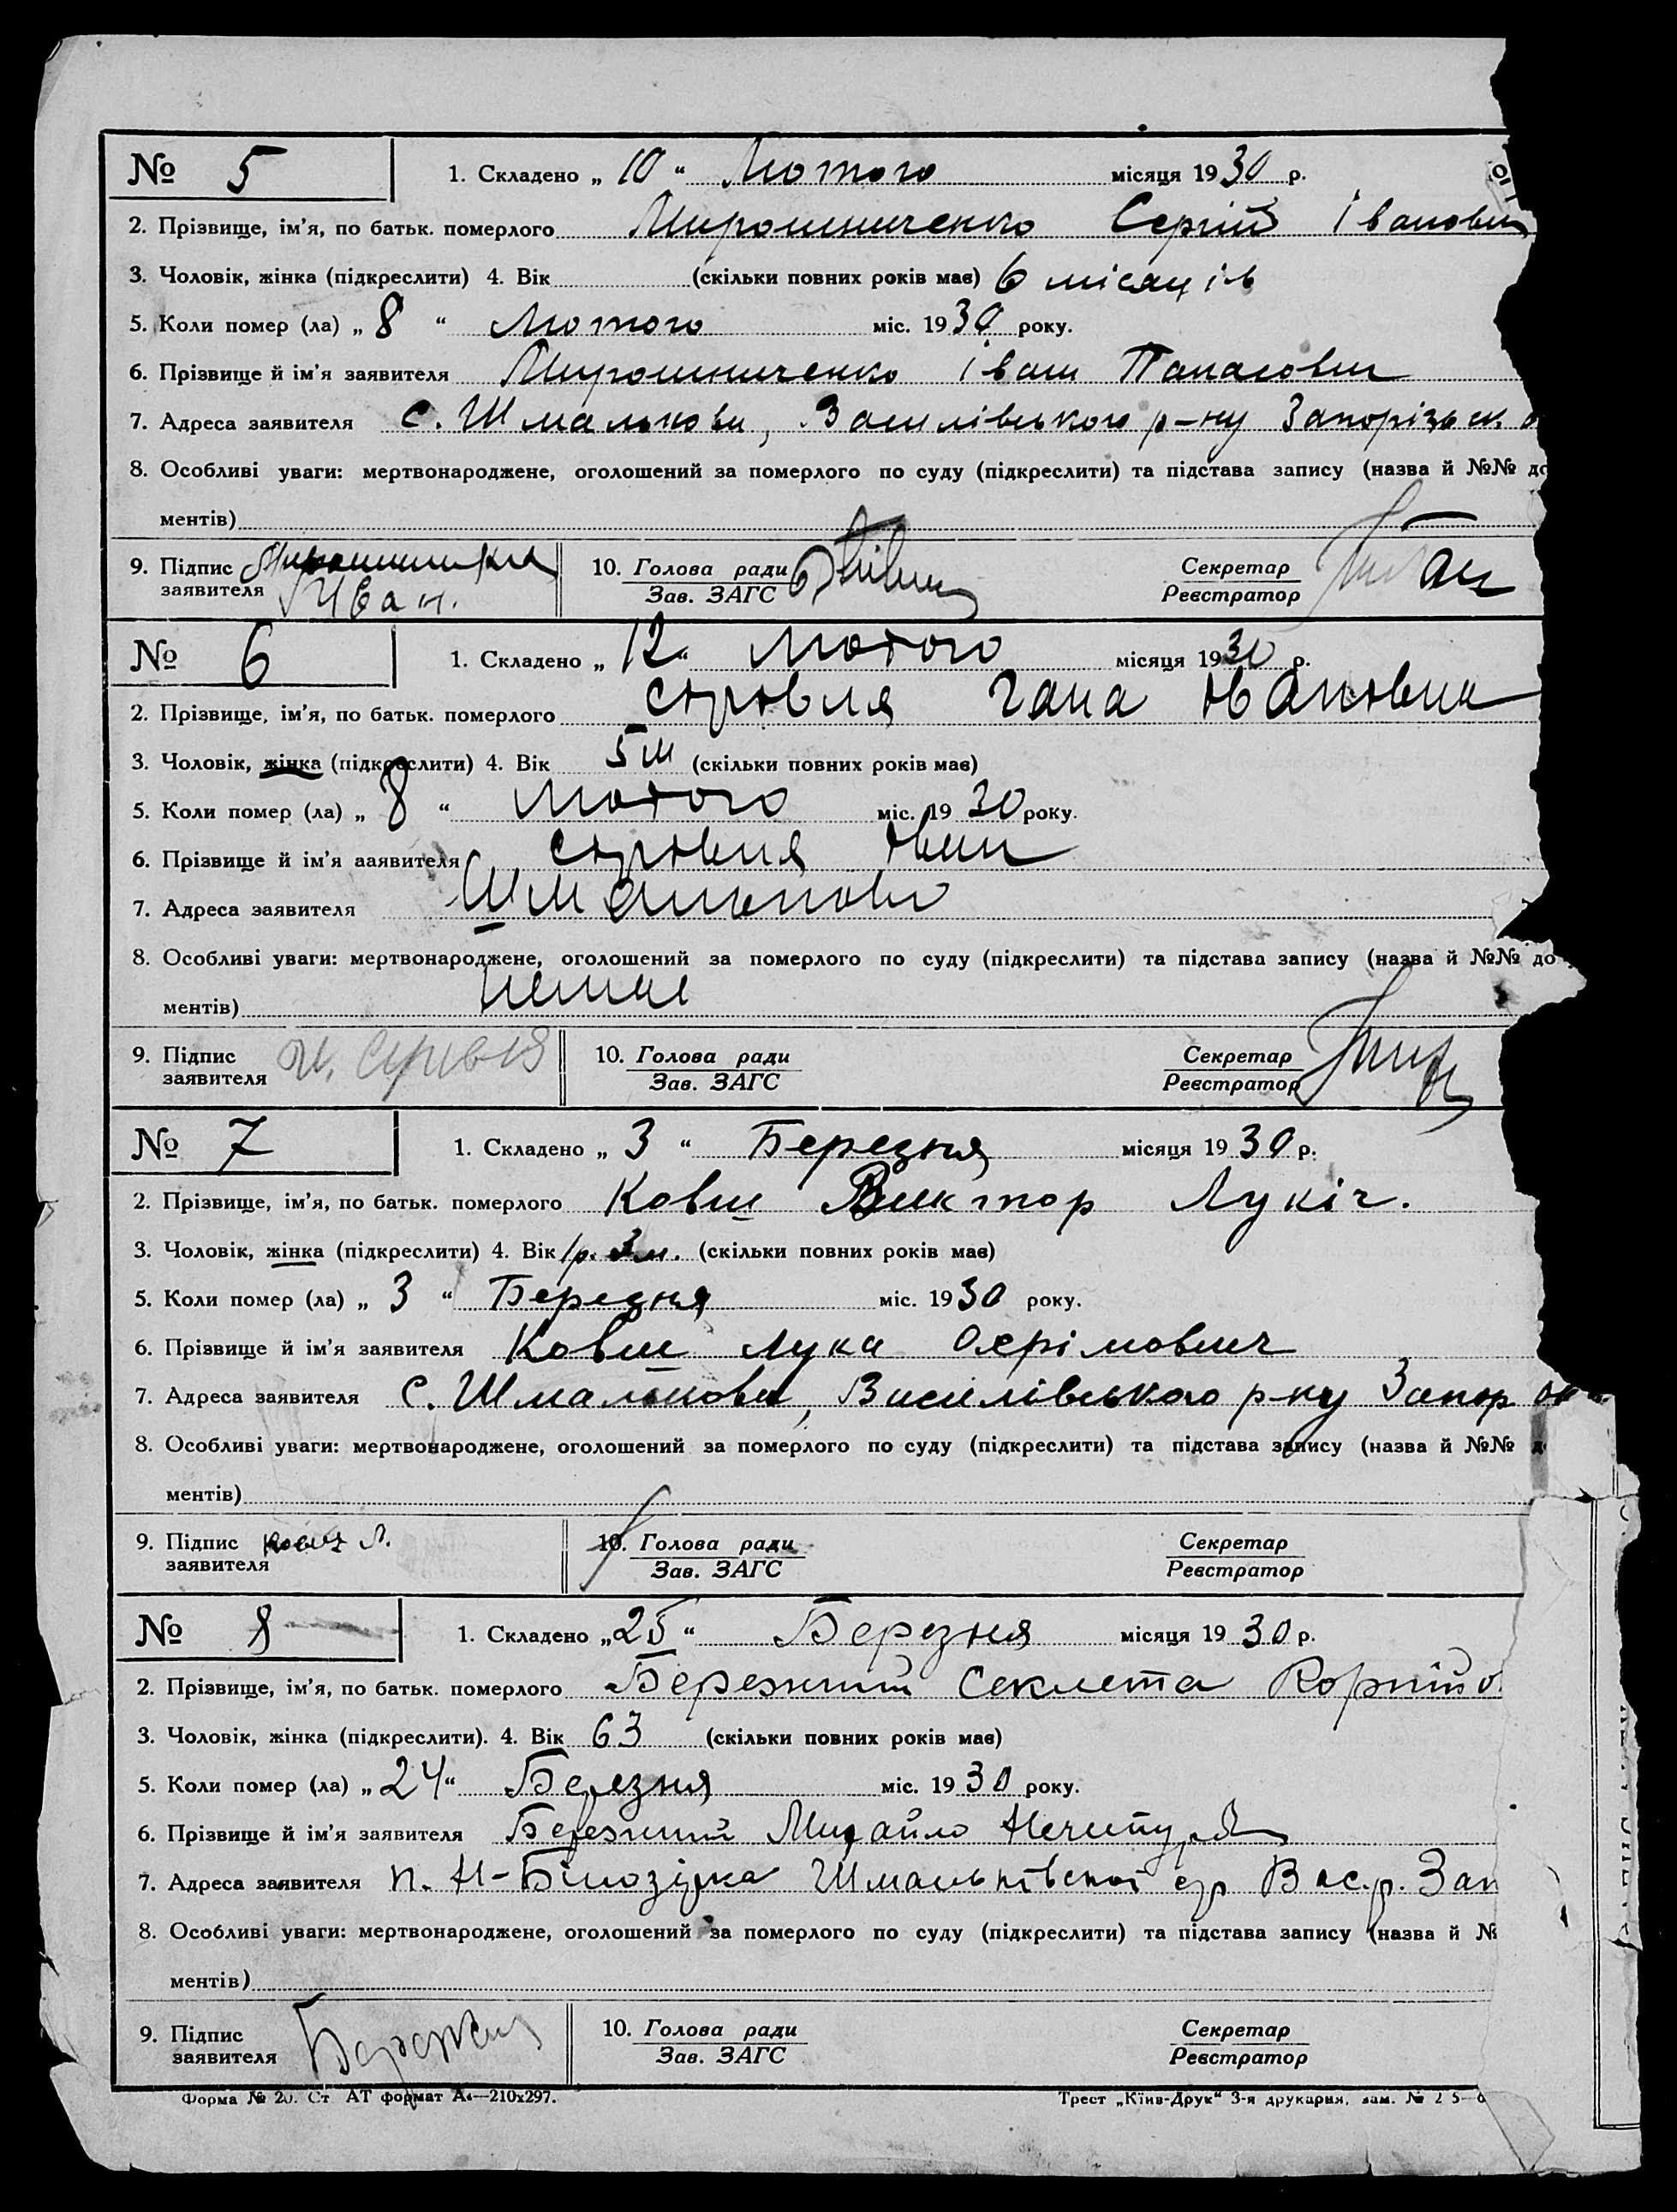 № 5 1. Складено „ 10 “ Лютого місяця 1930 р.
2. Прізвище, ім’я, по батьк. померлого Мирошниченко Сергій Іванович
3. Чоловік, жінка (підкреслити) 4. Вік (скільки повних років має) 6 місяців
5. Коли помер (ла) „ 8 “ Лютого міс. 1930 року.
6. Прізвище й ім’я заявителя Мирошниченко Іван Панасович
7. Адреса заявителя с. Шмалькови, Василівського р-ну Запорізьк.
8. Особливі уваги: мертвонароджене, оголошений за померлого по суду (підкреслити) та підстава запису (назва й №№ до
ментів)
9. Підпис заявителя Иван. 10. Голова ради Зав. ЗАГС Секретар Реєстратор
№ 6 1. Складено „ 12 “ лютого місяця 1930 р.
2. Прізвище, ім’я, по батьк. померлого Гана
3. Чоловік, жінка (підкреслити) 4. Вік 5 м (скільки повних років має)
5. Коли помер (ла) „ 8 “ лютого міс. 1930 року.
6. Прізвище й ім’я ааявителя
7. Адреса заявителя Шмальково
8. Особливі уваги: мертвонароджене, оголошений за померлого по суду (підкреслити) та підстава запису (назва й №№ до
ментів) немає
9. Підпис заявителя 10. Голова ради Зав. ЗАГС Секретар Реєстратор
№ 7 1. Складено „ 3 “ Березня місяця 1930 р.
2. Прізвище, ім’я, по батьк. померлого Ковш Виктор Лукіч.
3. Чоловік, жінка (підкреслити) 4. Вік 1р. 3м. (скільки повних років має)
5. Коли помер (ла) „ 3 “ Березня міс. 1930 року.
6. Прізвище й ім’я заявителя Ковш Лука Охрімович
7. Адреса заявителя с. Шмалькови, Василівського р-ну Запор. ок
8. Особливі уваги: мертвонароджене, оголошений за померлого по суду (підкреслити) та підстава запису (назва й №№ д
ментів)
9. Підпис заявителя Ковш Л. 10. Голова ради Зав. ЗАГС Секретар Реєстратор
№ 8 1. Складено „ 25 “ Березня місяця 1930 р.
2. Прізвище, ім’я, по батьк. померлого Бережний Секлета Корнійо
3. Чоловік, жінка (підкреслити). 4. Вік 63 (скільки повних років має)
5. Коли помер (ла) „ 24 “ Березня міс. 1930 року.
6. Прізвище й ім’я заявителя Бережний Михайло
7. Адреса заявителя п. Н-Білозірка Шмальківської с/р Вас.р. Зап
8. Особливі уваги: мертвонароджене, оголошений за померлого по суду (підкреслити) та підстава запису (назва й №
ментів)
9. Підпис заявителя 10. Голова ради Зав. ЗАГС Секретар Реєстратор
Форма № 20. Ст АТ формат А4—210х297. Трест „Київ-Друк“ 3-я друкарня, зам. №